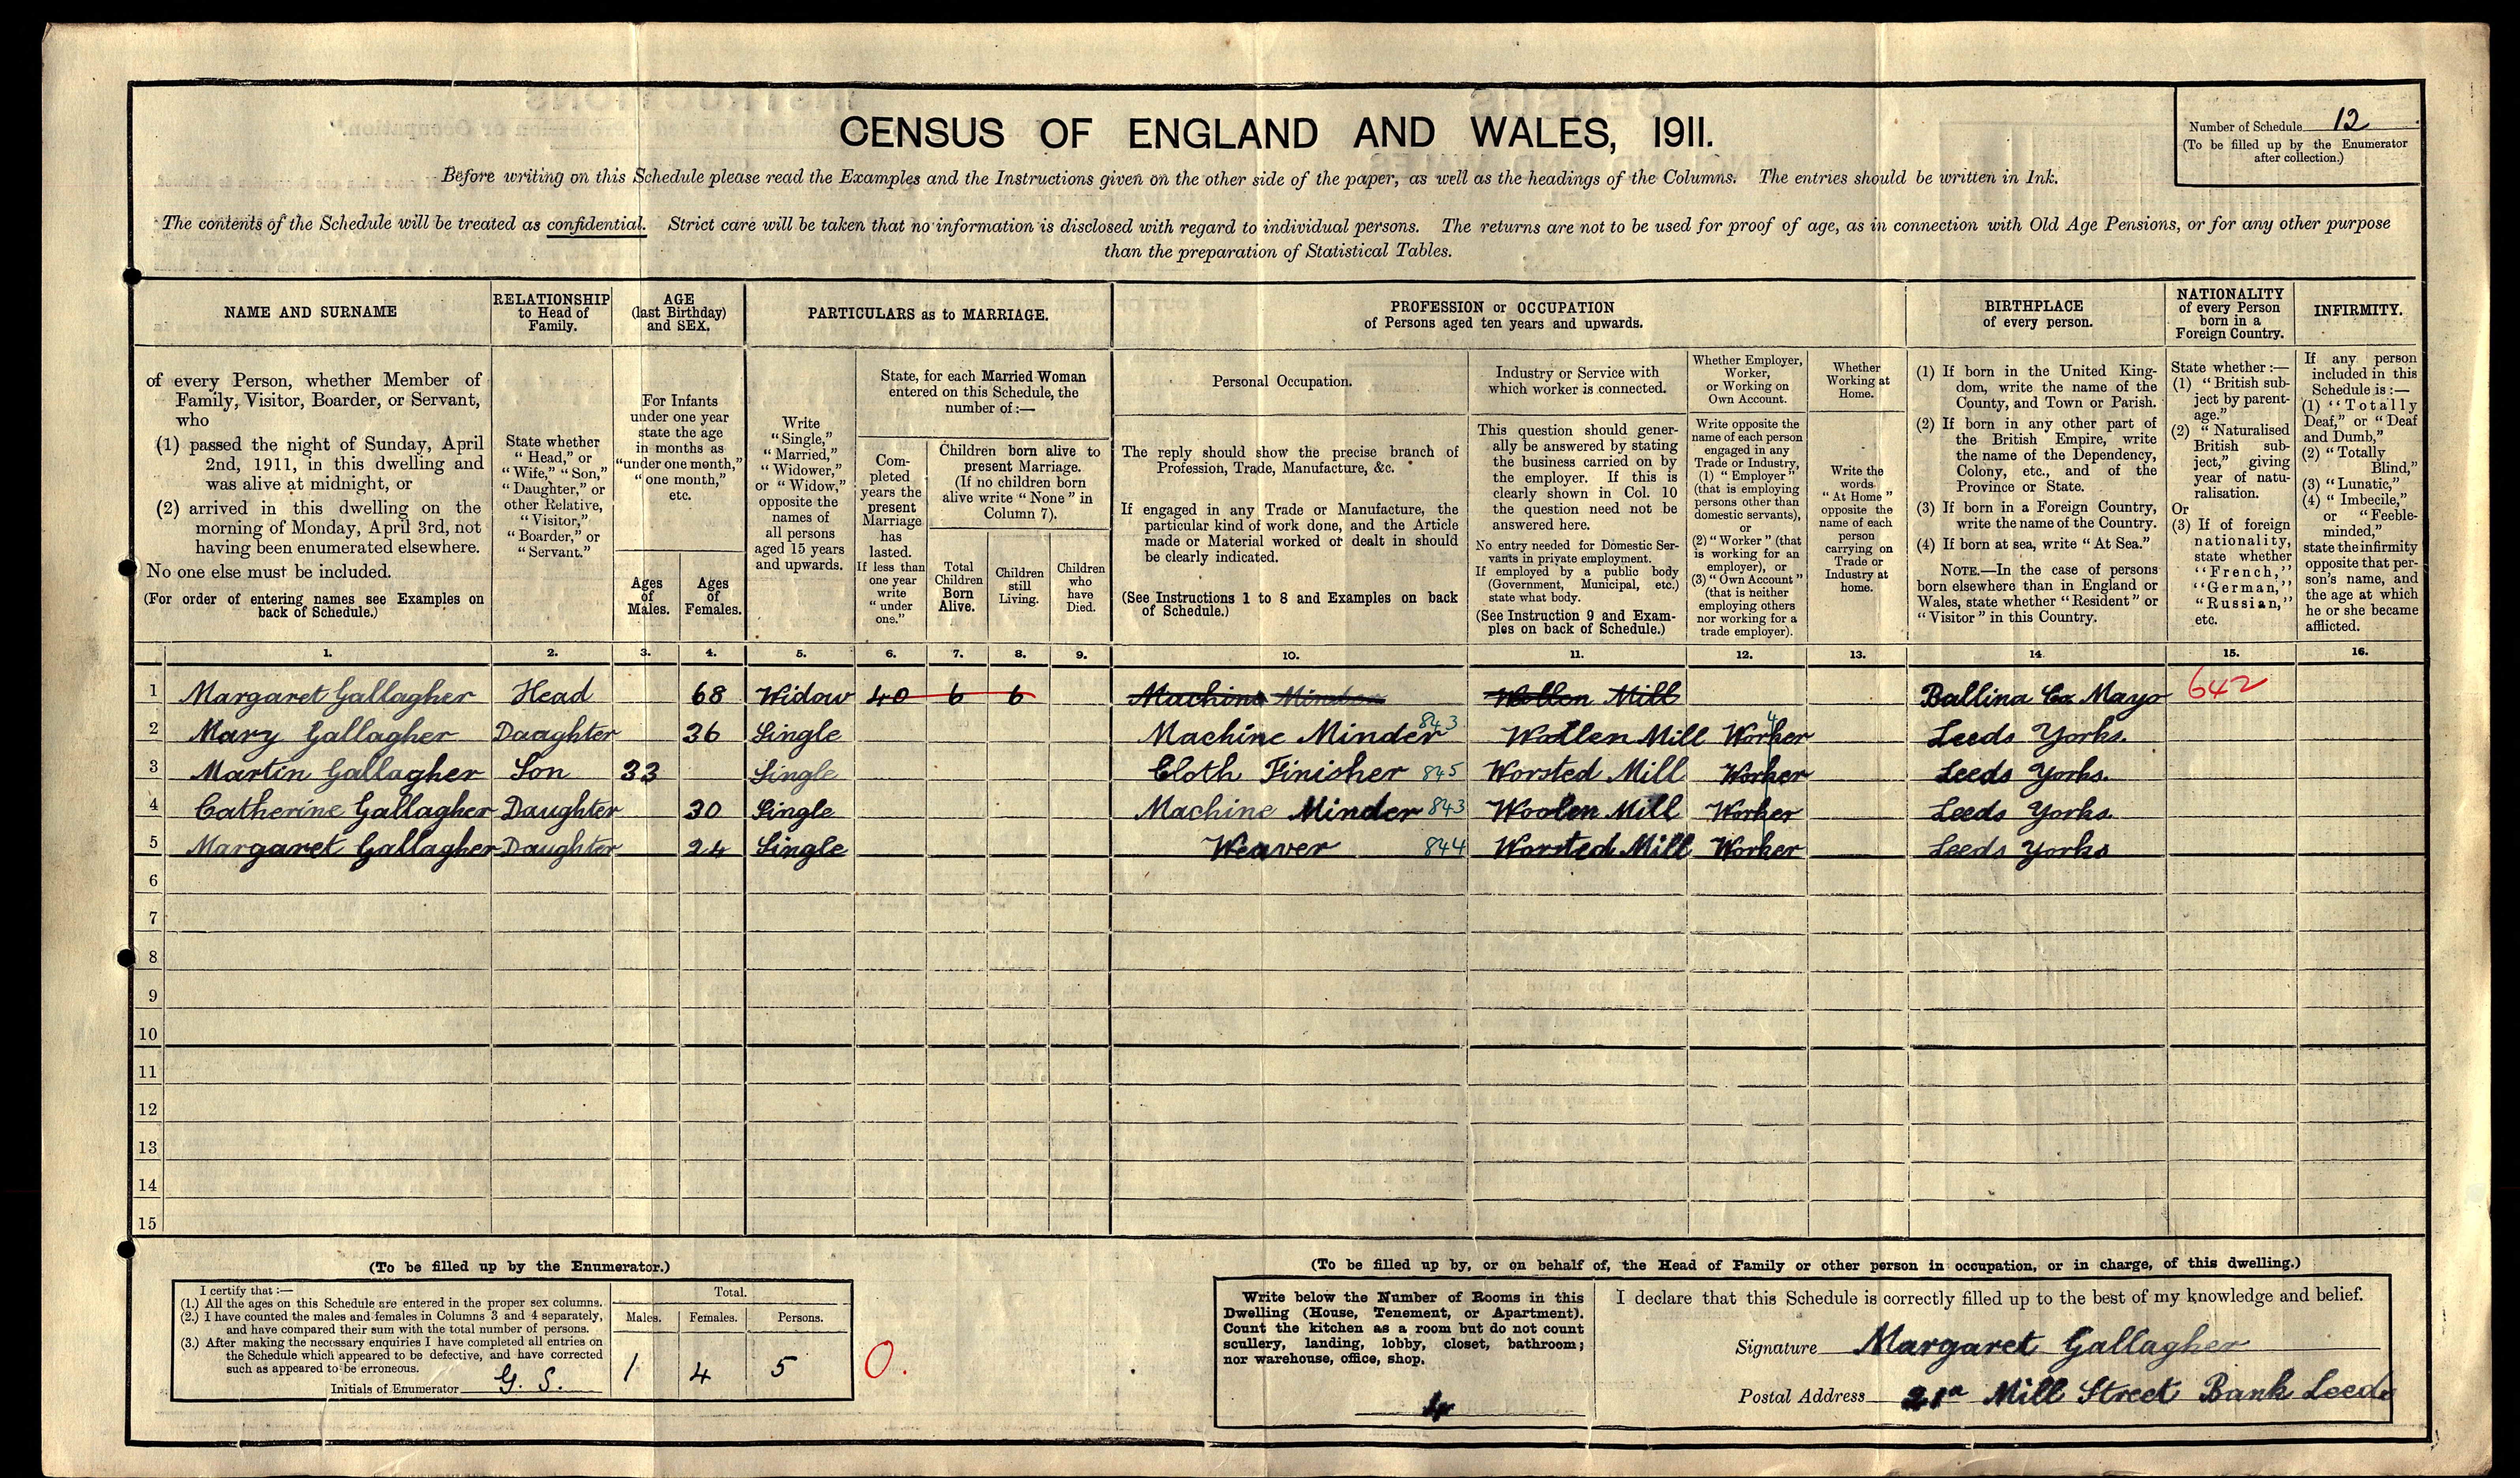 CENSUS OF ENGLAND AND WALES, 1911.
Number of Schedule 12
(To be filled up by the Enumerator
after collection.)
Before writing on this Schedule please read the Examples and the Instructions given on the other side of the paper, as well as the headings of the Columns. The entries should be written in Ink.
The contents of the Schedule will be treated as confidential. Strict care will be taken that no information is disclosed with regard to individual persons. The returns are not to be used for proof of age, as in connection with Old Age Pensions, or for any other purpose
than the preparation of Statistical Tables.
NAME AND SURNAME
of every Person, whether Member of
Family, Visitor, Boarder, or Servant,
who
(1) passed the night of Sunday, April
2nd, 1911, in this dwelling and
was alive at midnight, or
(2) arrived in this dwelling on the
morning of Monday, April 3rd, not
having been enumerated elsewhere.
No one else must be included.
(For order of entering names see Examples on
back of Schedule.)
RELATIONSHIP
to Head of
Family.
State whether
"Head," or
"Wife," "Son,"
"Daughter," or
other Relative,
"Visitor,"
"Boarder," or
"Servant."
AGE
(last Birthday)
and SEX.
For Infants
under one year
state the age
in months as
"under one month,"
"one month,"
etc.
Ages
of
Males.
Ages
of
Females.
PARTICULARS as to MARRIAGE.
Write
"Single,"
"Married,"
"Widower,"
or "Widow,"
opposite the
names of
all persons
aged 15 years
and upwards.
State, for each Married Woman
entered on this Schedule, the
number of:—
Com-
pleted
years the
present
Marriage
has
lasted.
If less than
one year
write
"under
one."
Children born alive to
present Marriage.
(If no children born
alive write "None" in
Column 7).
Total
Children
Born
Alive.
Children
still
Living.
Children
who
have
Died.
PROFESSION or OCCUPATION
of Persons aged ten years and upwards.
Personal Occupation.
The reply should show the precise branch of
Profession, Trade, Manufacture, &c.
If engaged in any Trade or Manufacture, the
particular kind of work done, and the Article
made or Material worked or dealt in should
be clearly indicated.
(See Instructions 1 to 8 and Examples on back
of Schedule.)
Industry or Service with
which worker is connected.
This question should gener-
ally be answered by stating
the business carried on by
the employer. If this is
clearly shown in Col. 10
the question need not be
answered here.
No entry needed for Domestic Ser-
vants in private employment.
If employed by a public body
(Government, Municipal, etc.)
state what body.
(See Instruction 9 and Exam-
ples on back of Schedule.)
Whether Employer,
Worker,
or Working on
Own Account.
Write opposite the
name of each person
engaged in any
Trade or Industry,
(1) "Employer"
(that is employing
persons other than
domestic servants),
or
(2) "Worker" (that
is working for an
employer), or
(3) "Own Account"
(that is neither
employing others
nor working for a
trade employer).
Whether
Working at
Home.
Write the
words
"At Home"
opposite the
name of each
person
carrying on
Trade or
Industry at
home.
BIRTHPLACE
of every person.
(1) If born in the United King-
dom, write the name of the
County, and Town or Parish.
(2) If born in any other part of
the British Empire, write
the name of the Dependency,
Colony, etc., and of the
Province or State.
(3) If born in a Foreign Country,
write the name of the Country.
(4) If born at sea, write "At Sea."
NOTE.—In the case of persons
born elsewhere than in England or
Wales, state whether "Resident" or
"Visitor" in this Country.
NATIONALITY
of every Person
born in a
Foreign Country.
State whether:—
(1) "British sub-
ject by parent-
age."
(2) "Naturalised
British sub-
ject," giving
year of natu-
ralisation.
Or
(3) If of foreign
nationality,
state whether
"French,"
"German,"
"Russian,"
etc.
INFIRMITY.
If any person
included in this
Schedule is:—
(1) "Totally
Deaf," or "Deaf
and Dumb,"
(2) "Totally
Blind,"
(3) "Lunatic,"
(4) "Imbecile,"
or "Feeble-
minded,"
state the infirmity
opposite that per-
son's name, and
the age at which
he or she became
afflicted.
1. 2. 3. 4. 5. 6. 7. 8. 9. 10. 11. 12. 13. 14. 15. 16.
1 Margaret Gallagher Head 68 Widow 40 6 6 Machine Minder Wollen Mill Ballina Co. Mayo 642
2 Mary Gallagher Daaghter 36 Single Machine Minder 843 Wollen Mill Worker 4 Leeds Yorks.
3 Martin Gallagher Son 33 Single Cloth Finisher 845 Worsted Mill Worker Leeds Yorks.
4 Catherine Gallagher Daughter 30 Single Machine Minder 843 Woolen Mill Worker Leeds Yorks
5 Margaret Gallagher Daughter 24 Single Weaver 844 Worsted Mill Worker Leeds Yorks
6
7
8
9
10
11
12
13
14
15
(To be filled up by the Enumerator.)
I certify that:—
(1.) All the ages on this Schedule are entered in the proper sex columns.
(2.) I have counted the males and females in Columns 3 and 4 separately,
and have compared their sum with the total number of persons.
(3.) After making the necessary enquiries I have completed all entries on
the Schedule which appeared to be defective, and have corrected
such as appeared to be erroneous.
Initials of Enumerator G. S.
Total.
Males. Females. Persons.
1 4 5
0.
(To be filled up by, or on behalf of, the Head of Family or other person in occupation, or in charge, of this dwelling.)
Write below the Number of Rooms in this
Dwelling (House, Tenement, or Apartment).
Count the kitchen as a room but do not count
scullery, landing, lobby, closet, bathroom;
nor warehouse, office, shop.
4
I declare that this Schedule is correctly filled up to the best of my knowledge and belief.
Signature Margaret Gallagher
Postal Address 21a Mill Street Bank Leeds